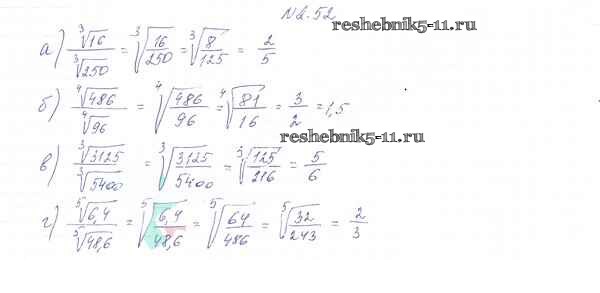 N 2.52
reshebnik5-11.ru
а) ∛16 / ∛250 = ∛(16/250) = ∛(8/125) = 2/5
б) ∜486 / ∜96 = ∜(486/96) = ∜(81/16) = 3/2 = 1,5
reshebnik5-11.ru
в) ∛3125 / ∛5400 = ∛(3125/5400) = ∛(125/216) = 5/6
г) ⁵√6,4 / ⁵√48,6 = ⁵√(6,4/48,6) = ⁵√(64/486) = ⁵√(32/243) = 2/3